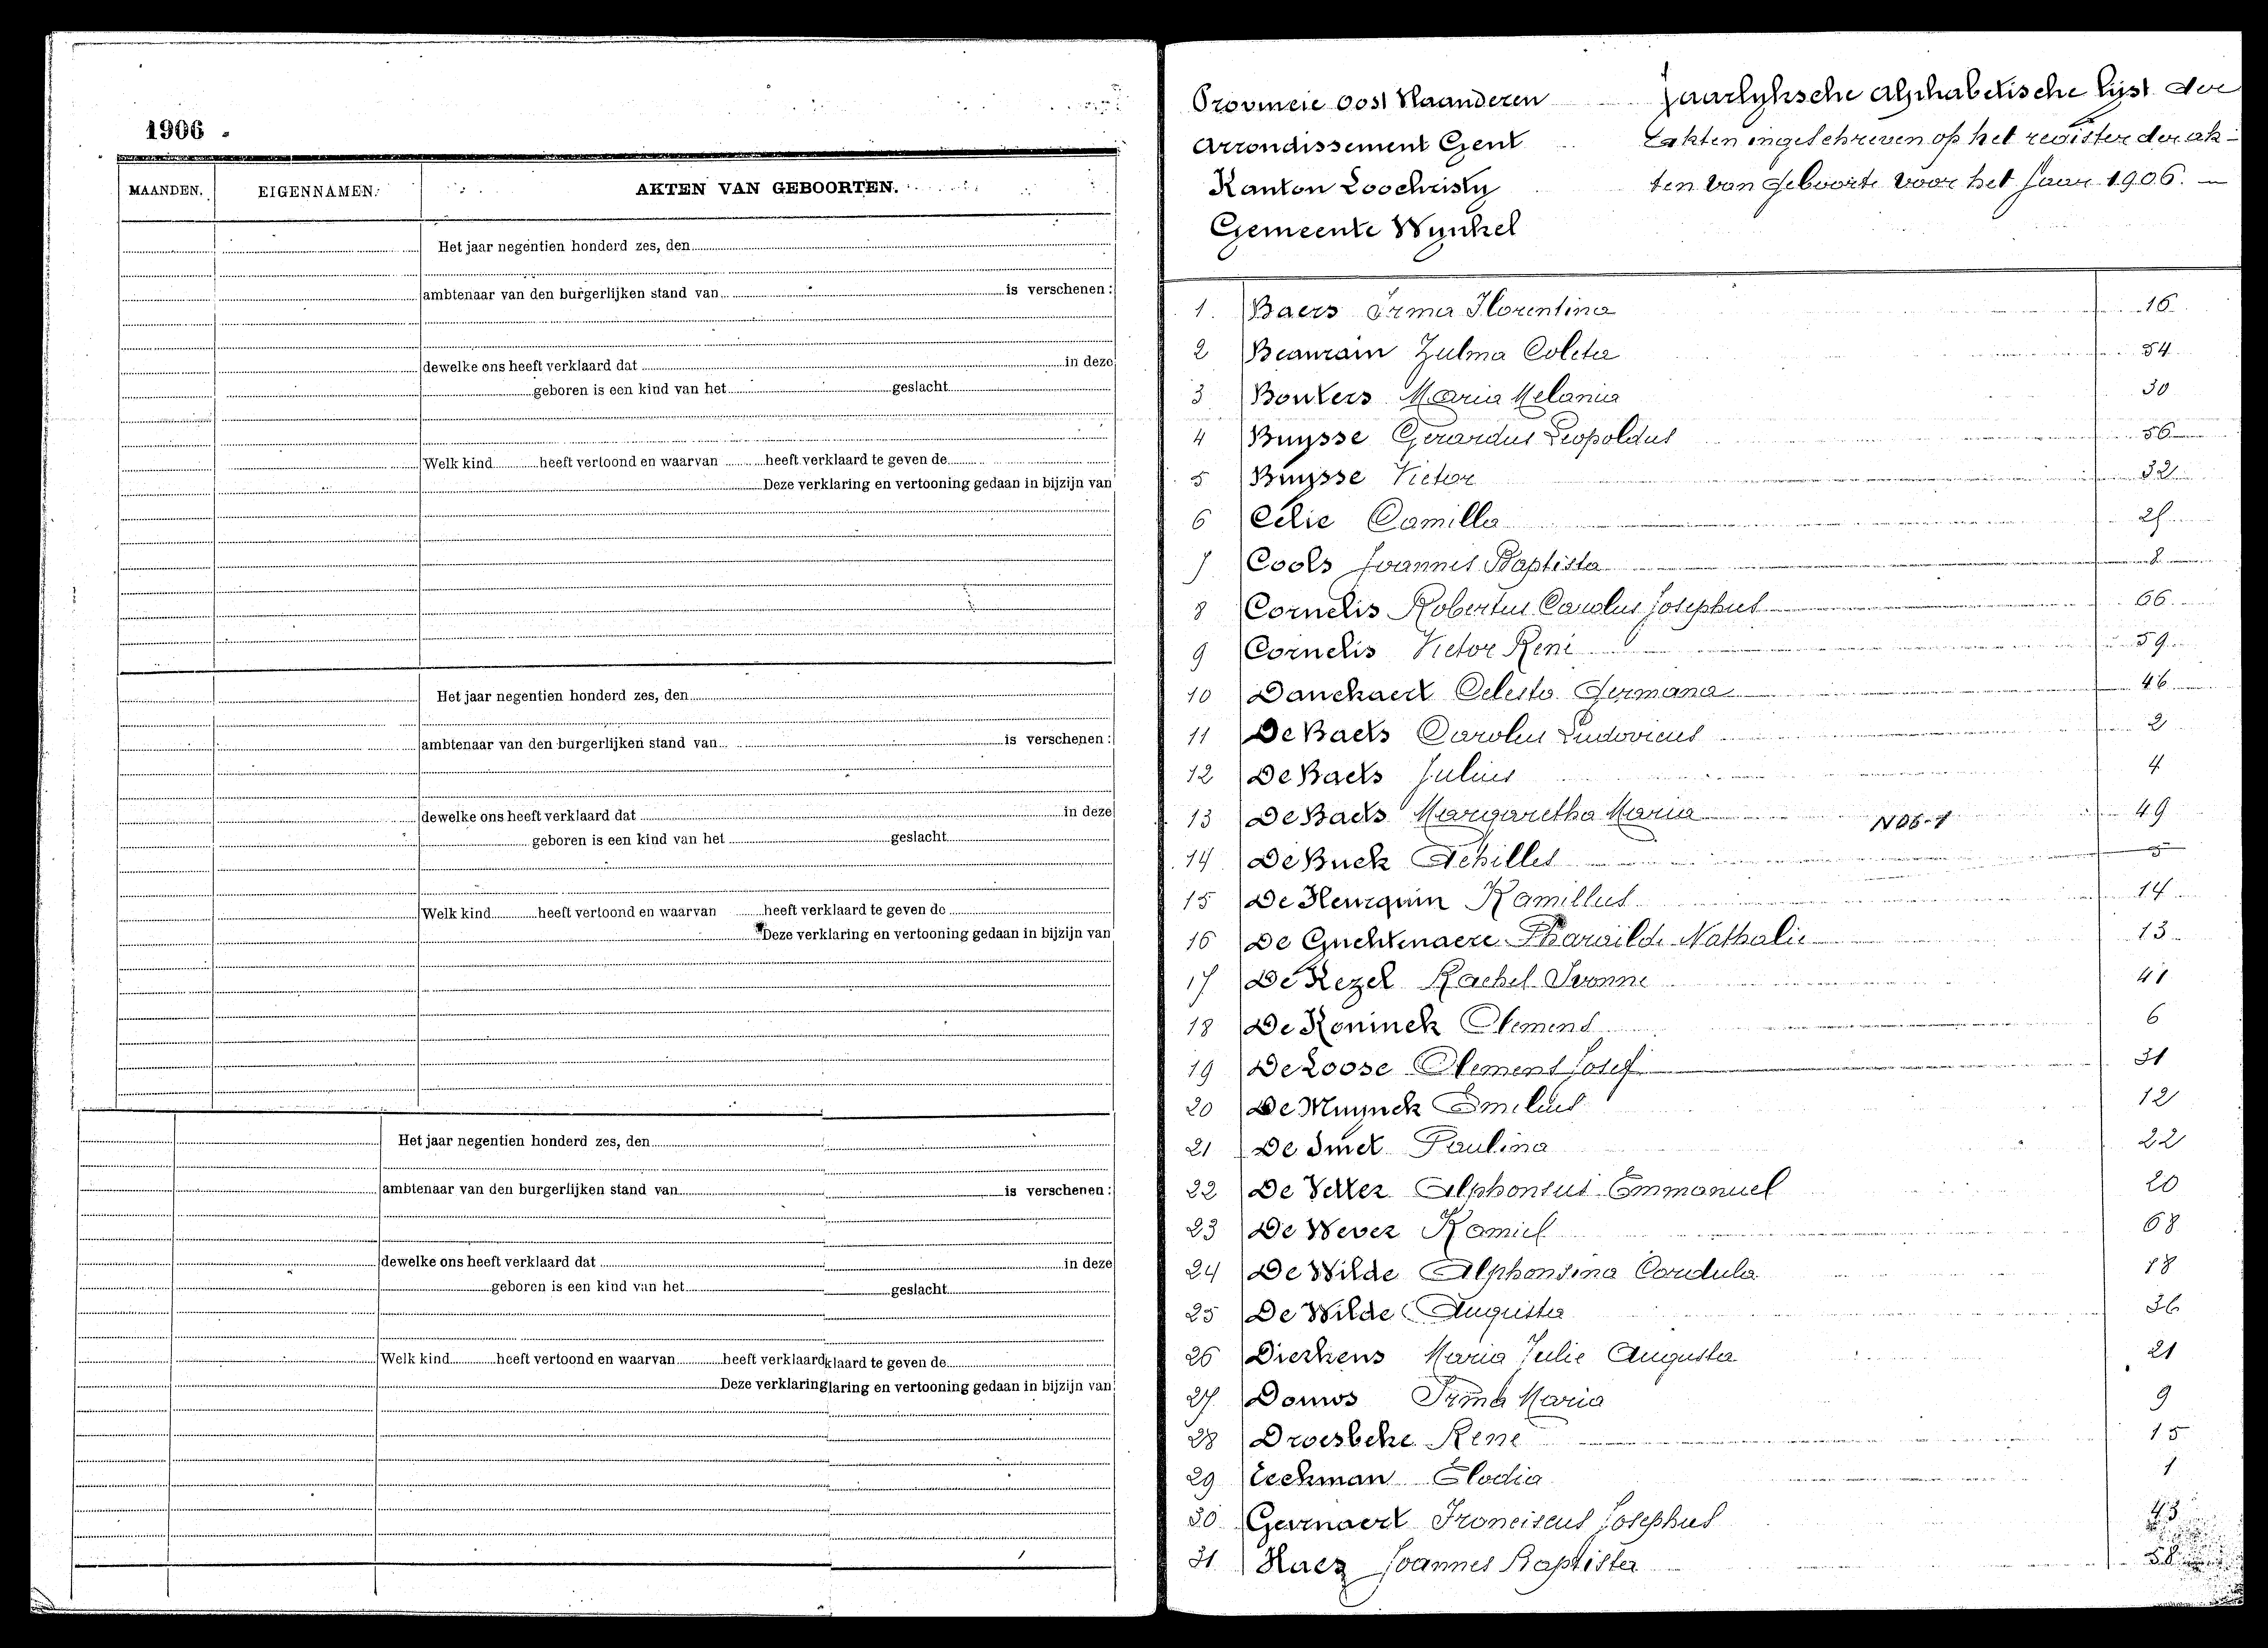 1906
MAANDEN.
EIGENNAMEN.
AKTEN VAN GEBOORTEN.
Het jaar negentien honderd zes, den
ambtenaar van den burgerlijken stand van is verschenen:
dewelke ons heeft verklaard dat in deze
geboren is een kind van het geslacht
Welk kind heeft vertoond en waarvan heeft verklaard te geven de
Deze verklaring en vertooning gedaan in bijzijn van
Het jaar negentien honderd zes, den
ambtenaar van den burgerlijken stand van is verschenen:
dewelke ons heeft verklaard dat in deze
geboren is een kind van het geslacht
Welk kind heeft vertoond en waarvan heeft verklaard te geven de
Deze verklaring en vertooning gedaan in bijzijn van
Het jaar negentien honderd zes, den
ambtenaar van den burgerlijken stand van is verschenen:
dewelke ons heeft verklaard dat in deze
geboren is een kind van het geslacht
Welk kind heeft vertoond en waarvan heeft verklaardklaard te geven de
Deze verklaringlaring en vertooning gedaan in bijzijn van
Provincie Oost Vlaanderen
Arrondissement Gent
Kanton Loochristy
Gemeente Wynkel
Jaarlyksche alphabetische lijst der
akten ingeschreven op het register der ak-
ten van geboorte voor het jaar 1906.
1. Baers Irma Florentina 16
2 Beaurain Zulma Coleta 54
3 Bonters Maria Melania 30
4 Buysse Gerardus Leopoldus 56
5 Buysse Victor 32
6 Celie Camilla 27
7 Cools Joannes Baptista 8
8 Cornelis Robertus Carolus Josephus 66
9 Cornelis Victor René 59
10 Danckaert Celesta Germana 46
11 De Baets Carolus Ludovicus 2
12 De Baets Julius 4
13 De Baets Margaretha Maria 49
14 De Buck Achilles 5
15 De Heurquin Kamillus 14
16 De Guchtenaere Pharaïlde Nathalie 13
17 De Kezel Rachel Ivonne 41
18 De Koninck Clement 6
19 De Loose Clement Josef 31
20 De Muynck Emilius 12
21 De Smet Paulina 22
22 De Vetter Alphonsus Emmanuel 20
23 De Wever Kamiel 68
24 De Wilde Alphonsina Cordula 18
25 De Wilde Augusta 36
26 Dierkens Maria Julie Augusta 21
27 Douwos Irma Maria 9
28 Droesbeke Rene 15
29 Eeckman Elodia 1
30 Gevenaert Franciscus Josephus 43
31 Haez Joannes Baptista 58